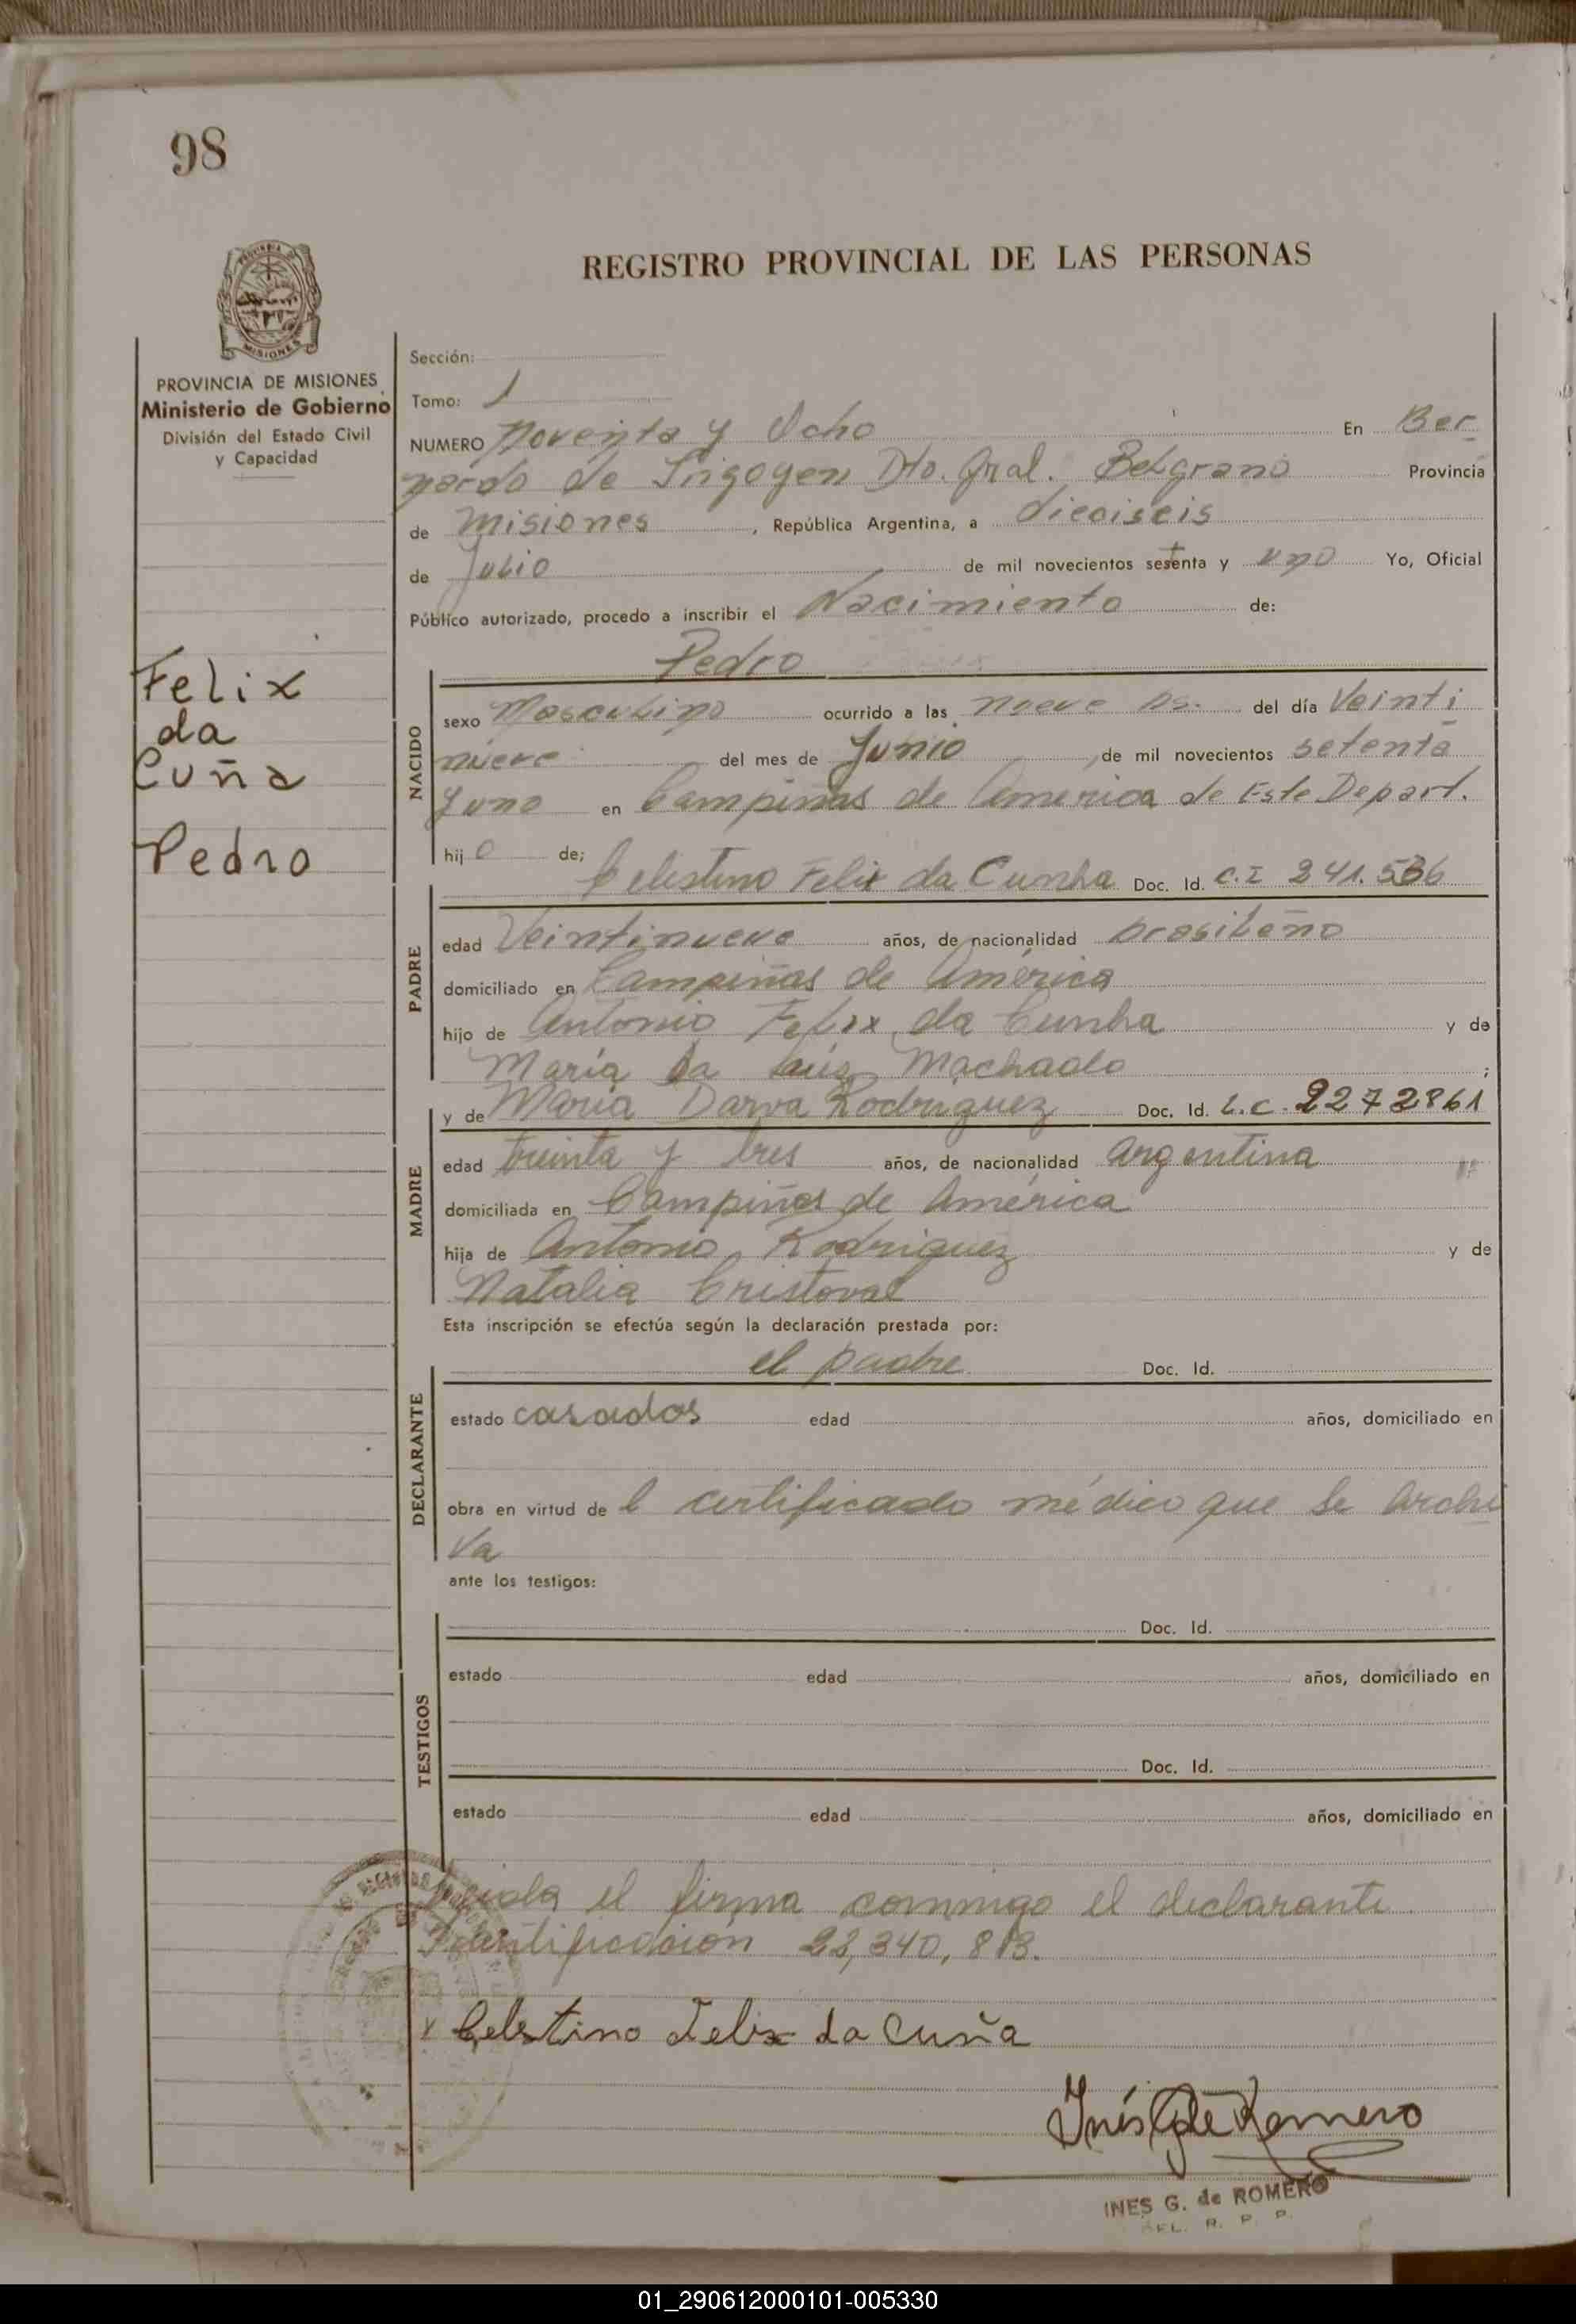 98
REGISTRO PROVINCIAL DE LAS PERSONAS
PROVINCIA DE MISIONES
Ministerio de Gobierno
División del Estado Civil
y Capacidad
Felix
da
Cuña
Pedro
Sección:
Tomo: 1
NUMERO Noventa y Ocho En Ber
nardo de Irigoyen Dto. Gral. Belgrano Provincia
de Misiones, República Argentina, a dieciseis
de Julio de mil novecientos setenta y uno Yo, Oficial
Público autorizado, procedo a inscribir el Nacimiento de:
Pedro
NACIDO
sexo Masculino ocurrido a las nueve hs. del día Veinti
nueve del mes de Junio, de mil novecientos setenta
y uno en Campiñas de America de Este Depart.
hijo de;
Celestino Felix da Cunha Doc. Id. C.I 241.536
PADRE
edad Veintinueve años, de nacionalidad brasileño
domiciliado en Campiñas de América
hijo de Antonio Felix da Cunha y de
María da Machado;
y de María Darva Rodriguez Doc. Id. L.C. 2272861
MADRE
edad treinta y tres años, de nacionalidad argentina
domiciliada en Campiñas de América
hija de Antonio Rodriguez y de
Natalia Cristoval
Esta inscripción se efectúa según la declaración prestada por:
el padre Doc. Id.
DECLARANTE
estado casados edad años, domiciliado en
obra en virtud de l certificado médico que se archi
va
ante los testigos:
Doc. Id.
TESTIGOS
estado edad años, domiciliado en
Doc. Id.
estado edad años, domiciliado en
el firma conmigo el declarante
22,340,813.
Celestino Felix da Cuña
Inés G de Romero
INES G. de ROMERO
DEL. R. P. P.
MISIONES
01_290612000101-005330